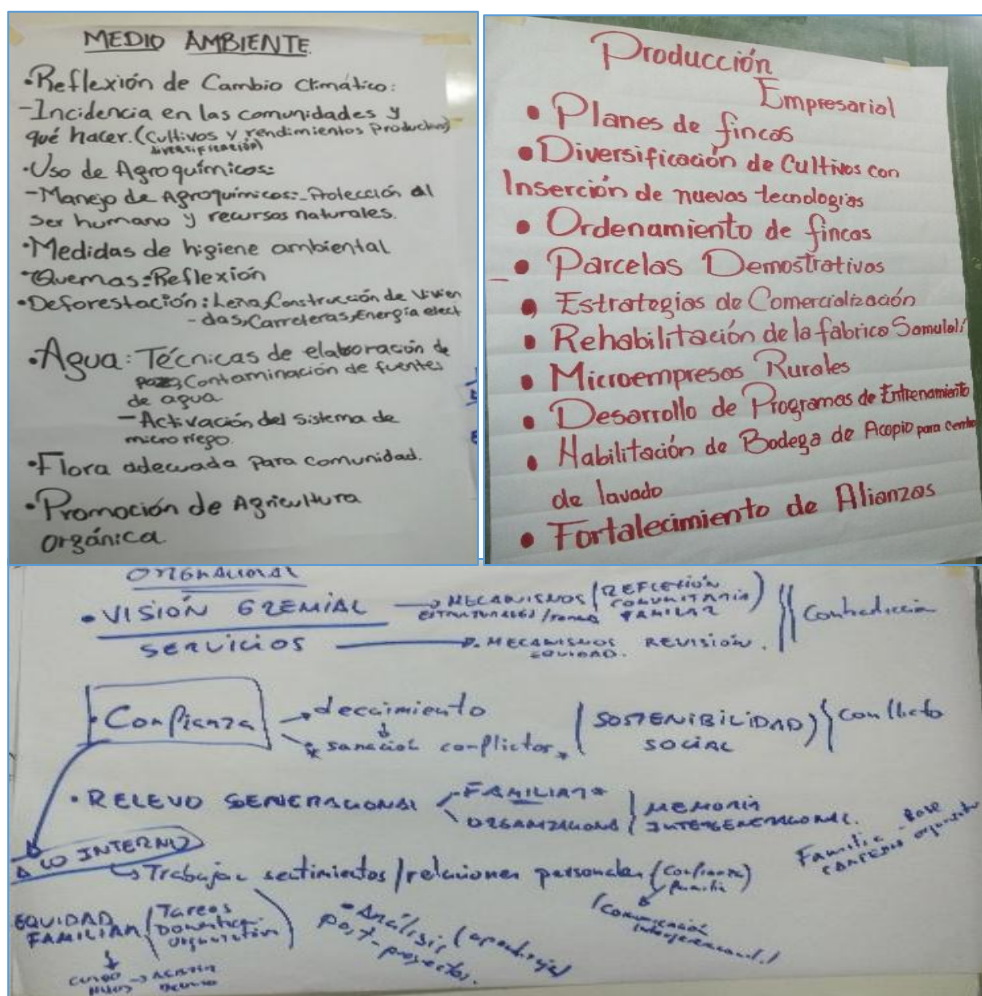 MEDIO AMBIENTE
•Reflexión de Cambio climático:
-Incidencia en las comunidades y
qué hacer. (Cultivos y rendimientos Productivos)
diversificación)
•Uso de Agroquímicos:
-Manejo de Agroquímicos:-Protección al
ser humano y recursos naturales.
•Medidas de higiene ambiental
•Quemas:Reflexión
•Deforestación: Leña, Construcción de Vivien
-das, Carreteras, Energía elect
•Agua: Técnicas de elaboración de
Contaminación de fuentes
de agua
-Activación del sistema de
micro riego.
•Flora adecuada para comunidad.
•Promoción de Agricultura
orgánica.
Producción
Empresarial
• Planes de fincas
• Diversificación de Cultivos con
Inserción de nuevas tecnologias
• Ordenamiento de fincas
• Parcelas Demostrativas
• Estrategias de Comercialización
• Rehabilitación de la fabrica Somulali
• Microempresas Rurales
• Desarrollo de Programas de Entrenamiento
• Habilitación de Bodega de Acopio para centro
de lavado
• Fortalecimiento de Alianzas
• VISIÓN GREMIAL → MECANISMOS (REFLEXIÓN
COMUNITARIA
FAMILIAR)
Contradicción
SERVICIOS → MECANISMOS REVISIÓN.
EQUIDAD.
• Confianza → decaimiento (SOSTENIBILIDAD) Conflicto
conflictos. SOCIAL
• RELEVO GENERACIONAL FAMILIAR MEMORIA
INTERGENERACIONAL.
Familia - Base
LO INTERNO
Trabajar sentimientos/relaciones personales (confianza)
familia
(Comunicación
intergeneracional)
EQUIDAD (Tareas
FAMILIAR Domésticas
•Análisis (aprendizaje)
post-proyectos.